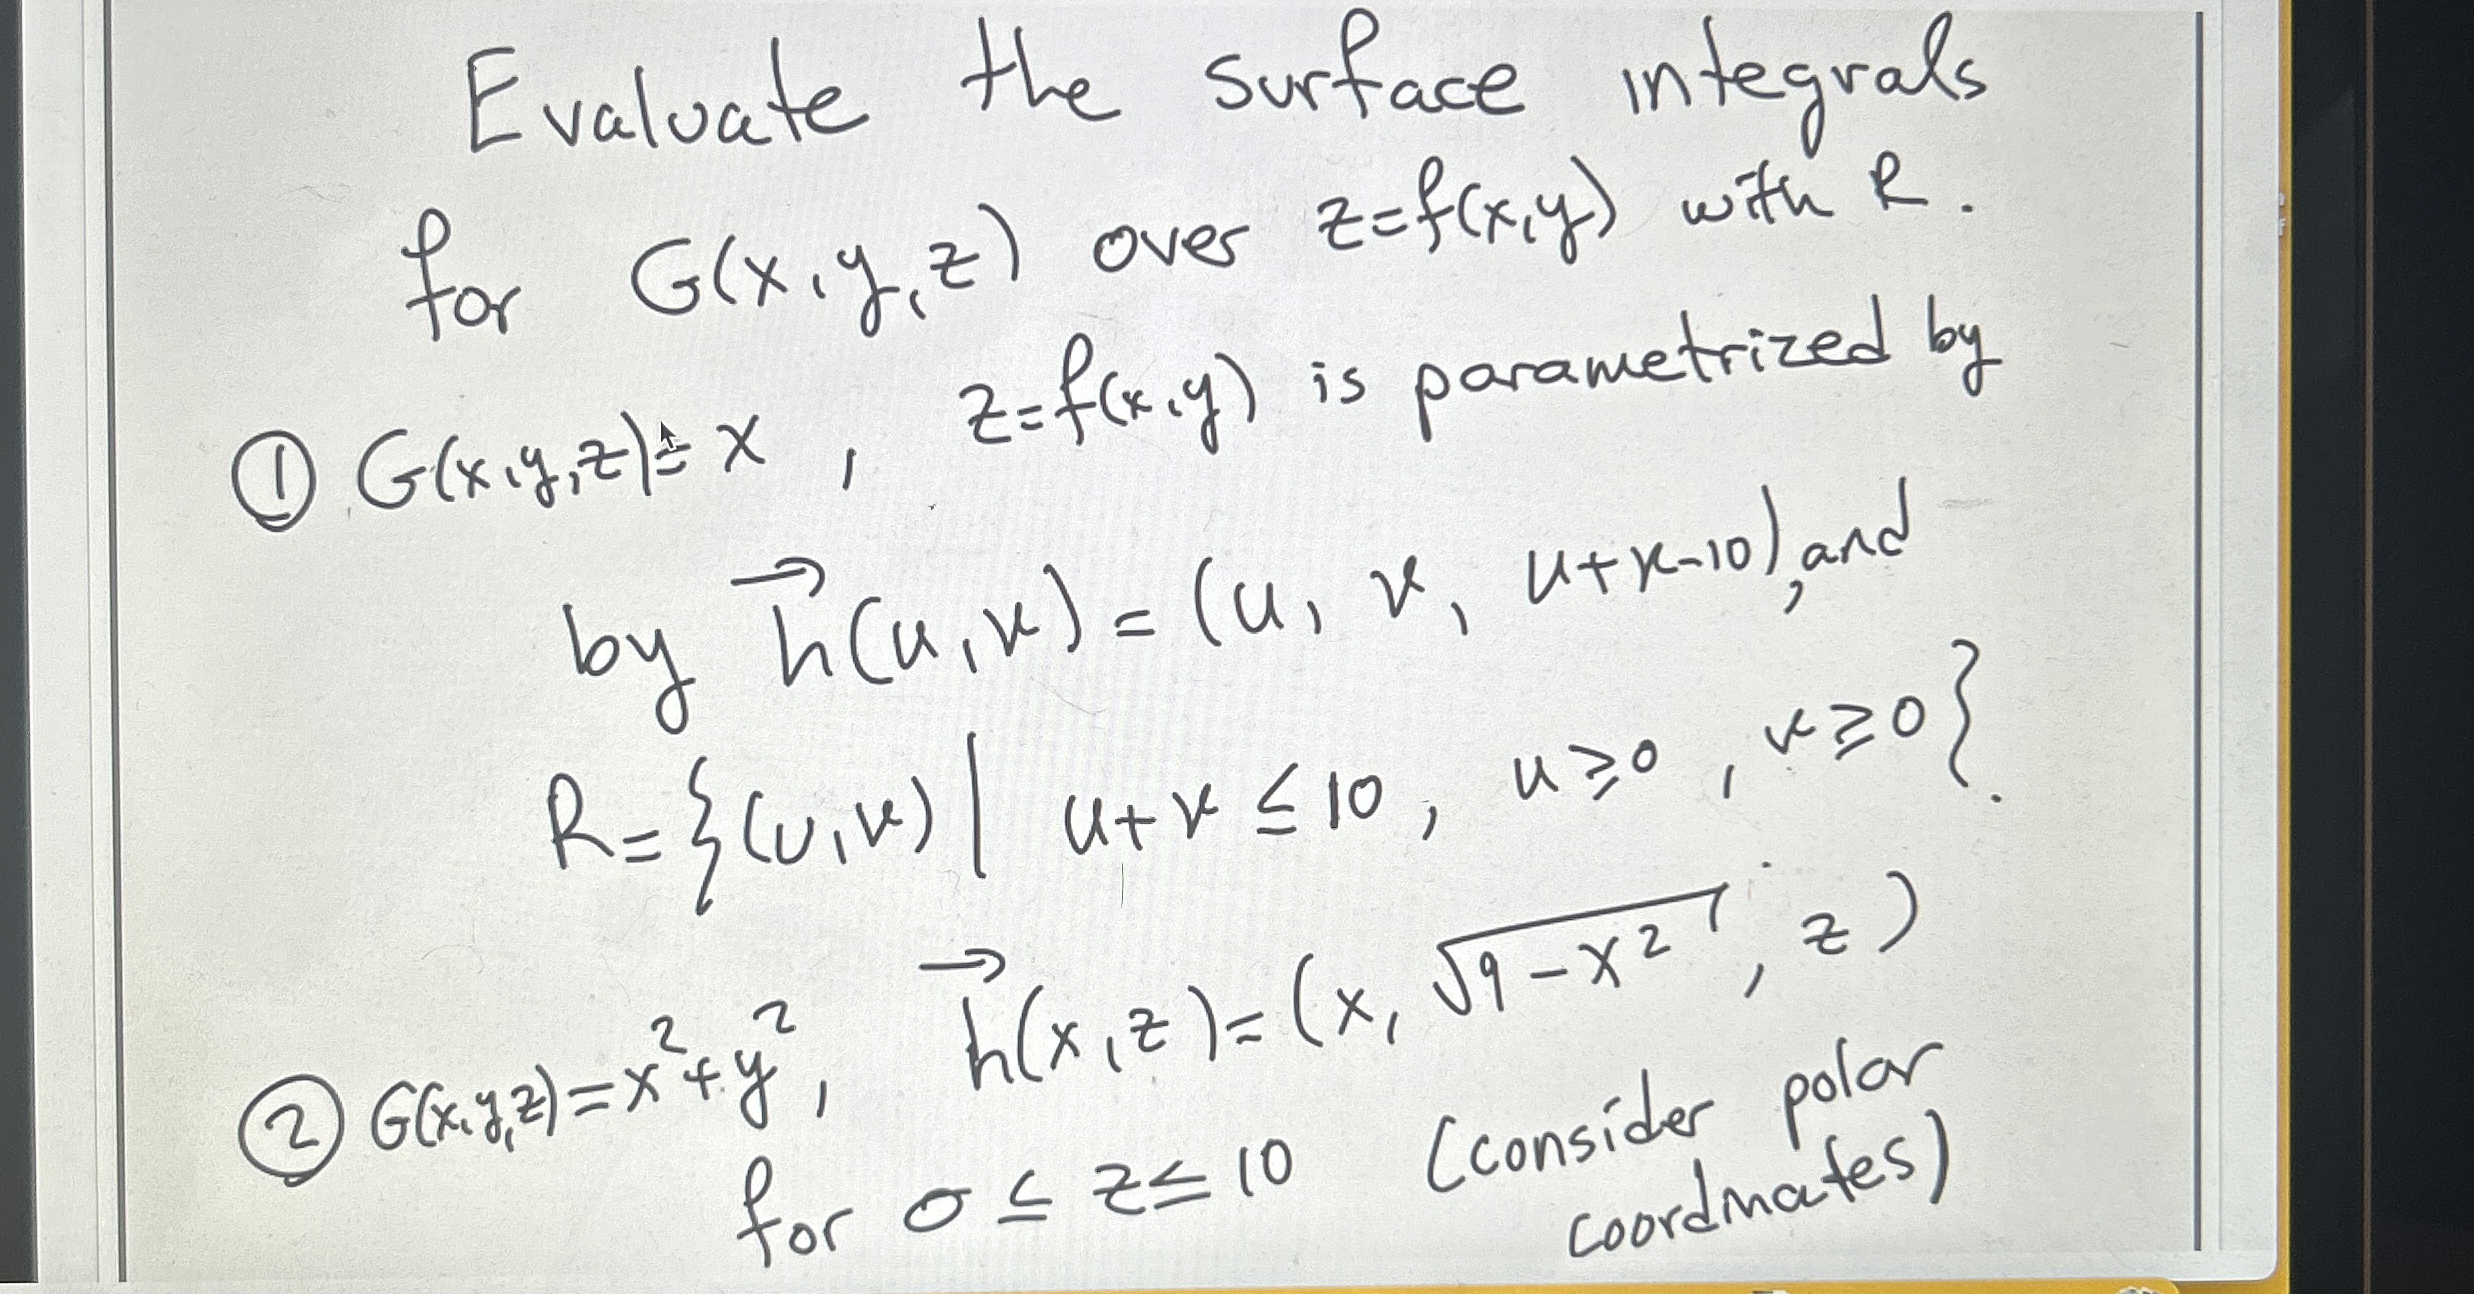 Evaluate the surface integrals
for G(x,y,z) over z=f(x,y) with R.
① G(x,y,z)= x , z=f(x,y) is parametrized by
by h⃗(u,v) = (u, v, u+v-10), and
R={(u,v) | u+v ≤ 10, u≥0, v≥0}.
② G(x,y,z)=x²+y², h⃗(x,z)=(x, √9-x², z)
for 0 ≤ z ≤ 10 (consider polar
coordinates)